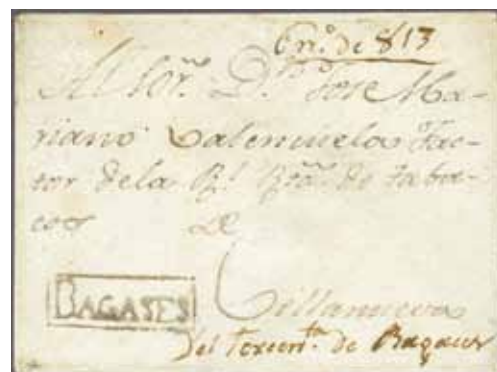 En.º de 813
Al Sor. Dn. Jose Ma-
riano Valenzuela Fac-
tor de la Rl. Rta. de Taba-
cos De
BAGASES
Villanueva
del Tenient.e de Bagaces